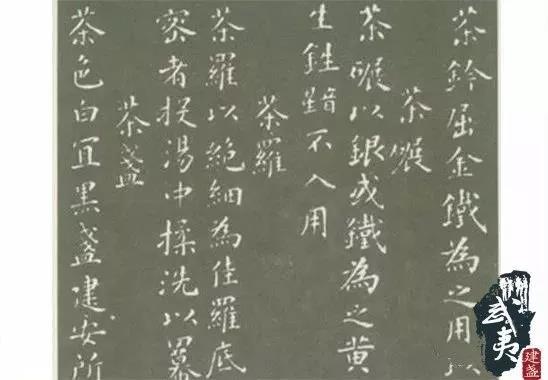 茶鈐屈金鐵為之用以
茶碾
茶碾以銀或鐵為之黃
生鉎不入用
茶羅
茶羅以絕細為佳羅底
密者投湯中揉洗以冪
茶盞
茶色白宜黑盞建安所
武夷
建盏